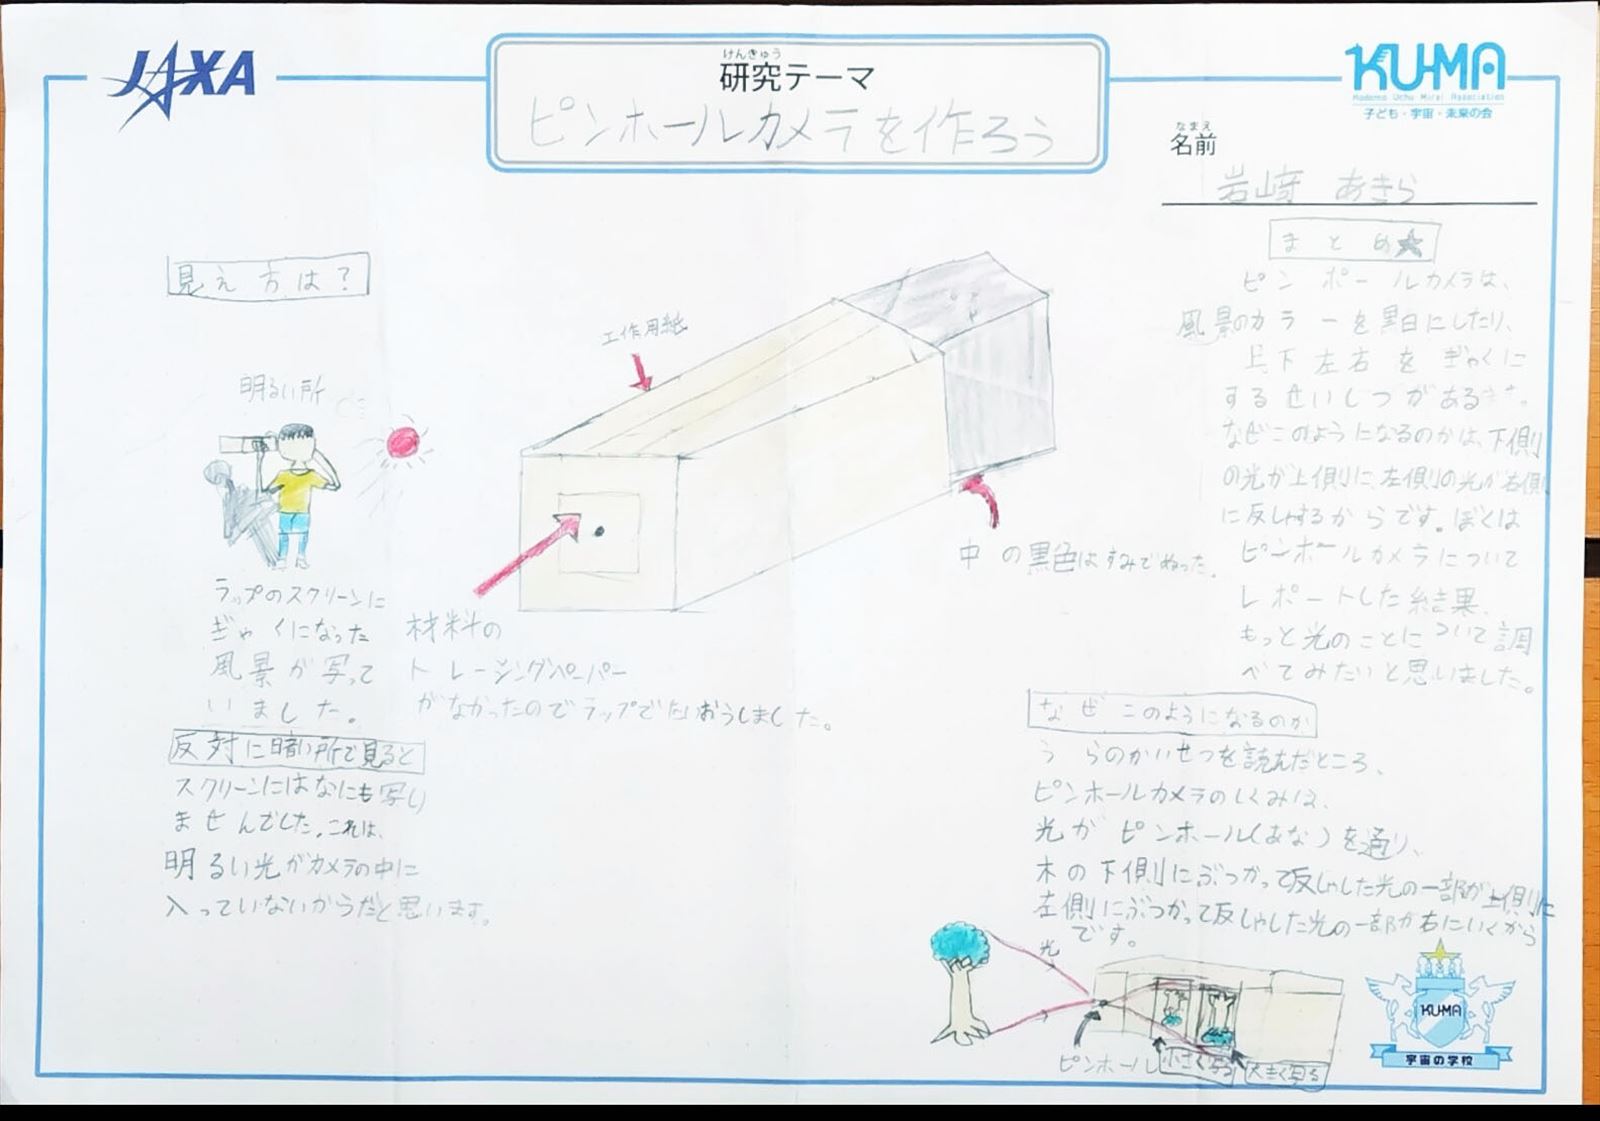 JAXA
けんきゅう
研究テーマ
ピンホールカメラを作ろう
KU-MA
Kodomo Uchu Mirai Association
子ども・宇宙・未来の会
なまえ
名前
岩崎 あきら
見え方は?
明るい所
ラップのスクリーンに
ぎゃくになった
風景が写って
いました。
反対に暗い所で見ると
スクリーンにはなにも写り
ませんでした。これは、
明るい光がカメラの中に
入っていないからだと思います。
工作用紙
材料の
トレーシングペーパー
がなかったのでラップでたいおうしました。
中の黒色はすみでぬった。
まとめ★
ピンポールカメラは、
風景のカラーを黒白にしたり、
上下左右をぎゃくに
するせいしつがある
なぜこのようになるのかは、下側
の光が上側に、左側の光が右側
に反しゃするからです。ぼくは
ピンホールカメラについて
レポートした結果、
もっと光のことについて調
べてみたいと思いました。
なぜこのようになるのか
うらのかいせつを読んだところ、
ピンホールカメラのしくみは、
光がピンホール(あな)を通り、
木の下側にぶつかって反しゃした光の一部が上側に
左側にぶつかって反しゃした光の一部が右にいくから
です。
光
ピンホール
小さく写る
大きく写る
KU-MA
宇宙の学校